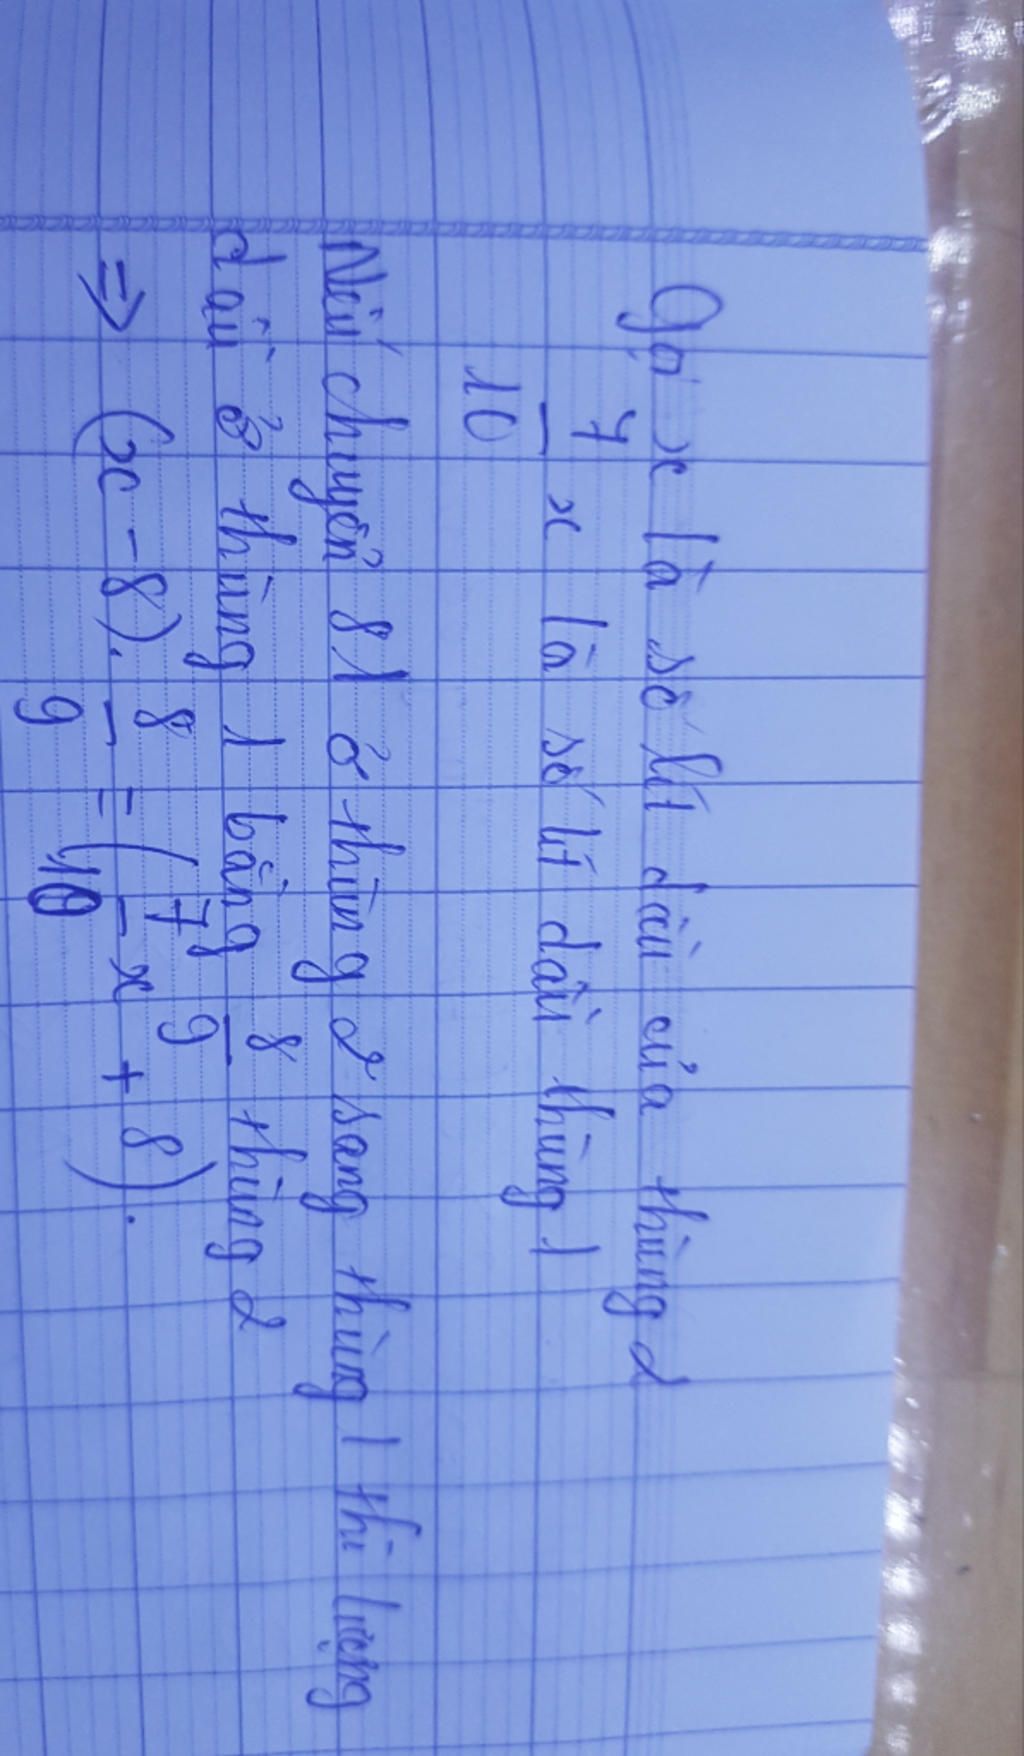 Gọi x là số lít dầu của thùng 2
7/10 x là số lít dầu thùng 1
Nếu chuyển 8l ở thùng 2 sang thùng 1 thì lượng
dầu ở thùng 1 bằng 8/9 thùng 2
⇒ (x - 8). 8/9 = (7/10 x + 8).